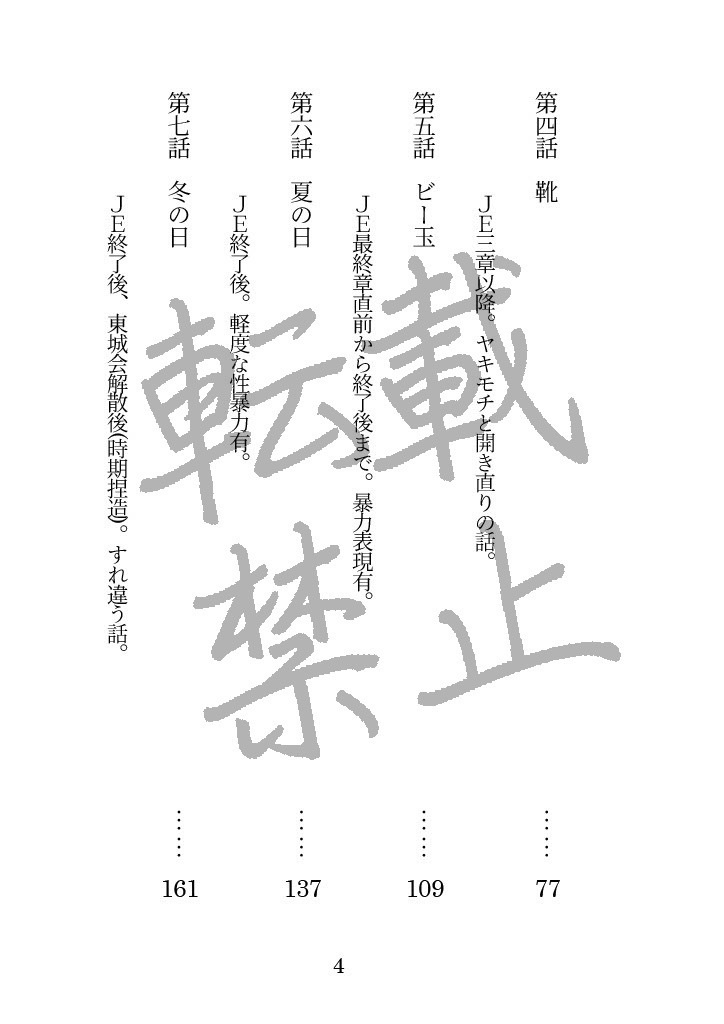 第四話　靴
……77
ＪＥ三章以降。ヤキモチと開き直りの話。
第五話　ビー玉
……109
ＪＥ最終章直前から終了後まで。暴力表現有。
第六話　夏の日
……137
ＪＥ終了後。軽度な性暴力有。
第七話　冬の日
……161
ＪＥ終了後、東城会解散後(時期捏造)。すれ違う話。
転載
禁止
4